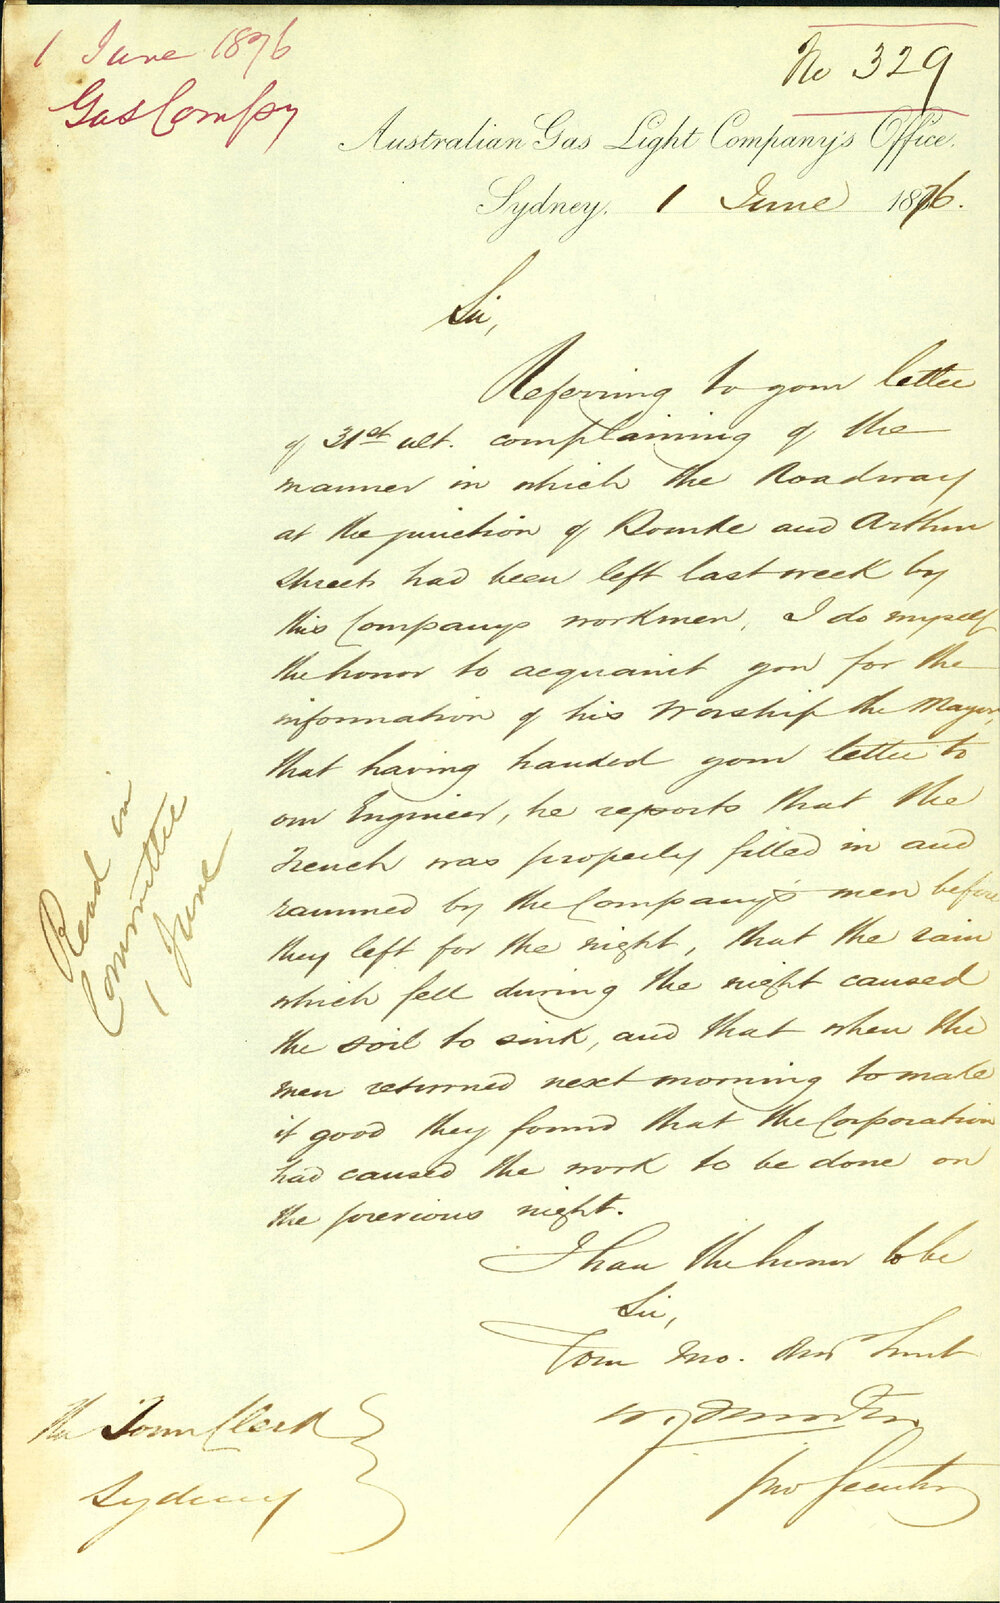 1 June 1876
Gas Compy
No 329
Australian Gas Light Company's Office.
Sydney, 1 June 1876.
Sir,
Referring to your letter
of 31st ult. complaining of the
manner in which the Roadway
at the junction of Bourke and Arthur
Streets had been left last week by
this Company's workmen, I do myself
the honor to acquaint you for the
information of his Worship the Mayor,
that having handed your letter to
our Engineer, he reports that the
Trench was properly filled in and
rammed by the Company's men before
they left for the night, that the rain
which fell during the night caused
the soil to sink, and that when the
men returned next morning to make
it good they found that the Corporation
had caused the work to be done on
the previous night.
I have the honor to be
Sir,
Your mo. Obt Servt
pro Secretary
The Town Clerk
Sydney
Read in
Committee
1 June